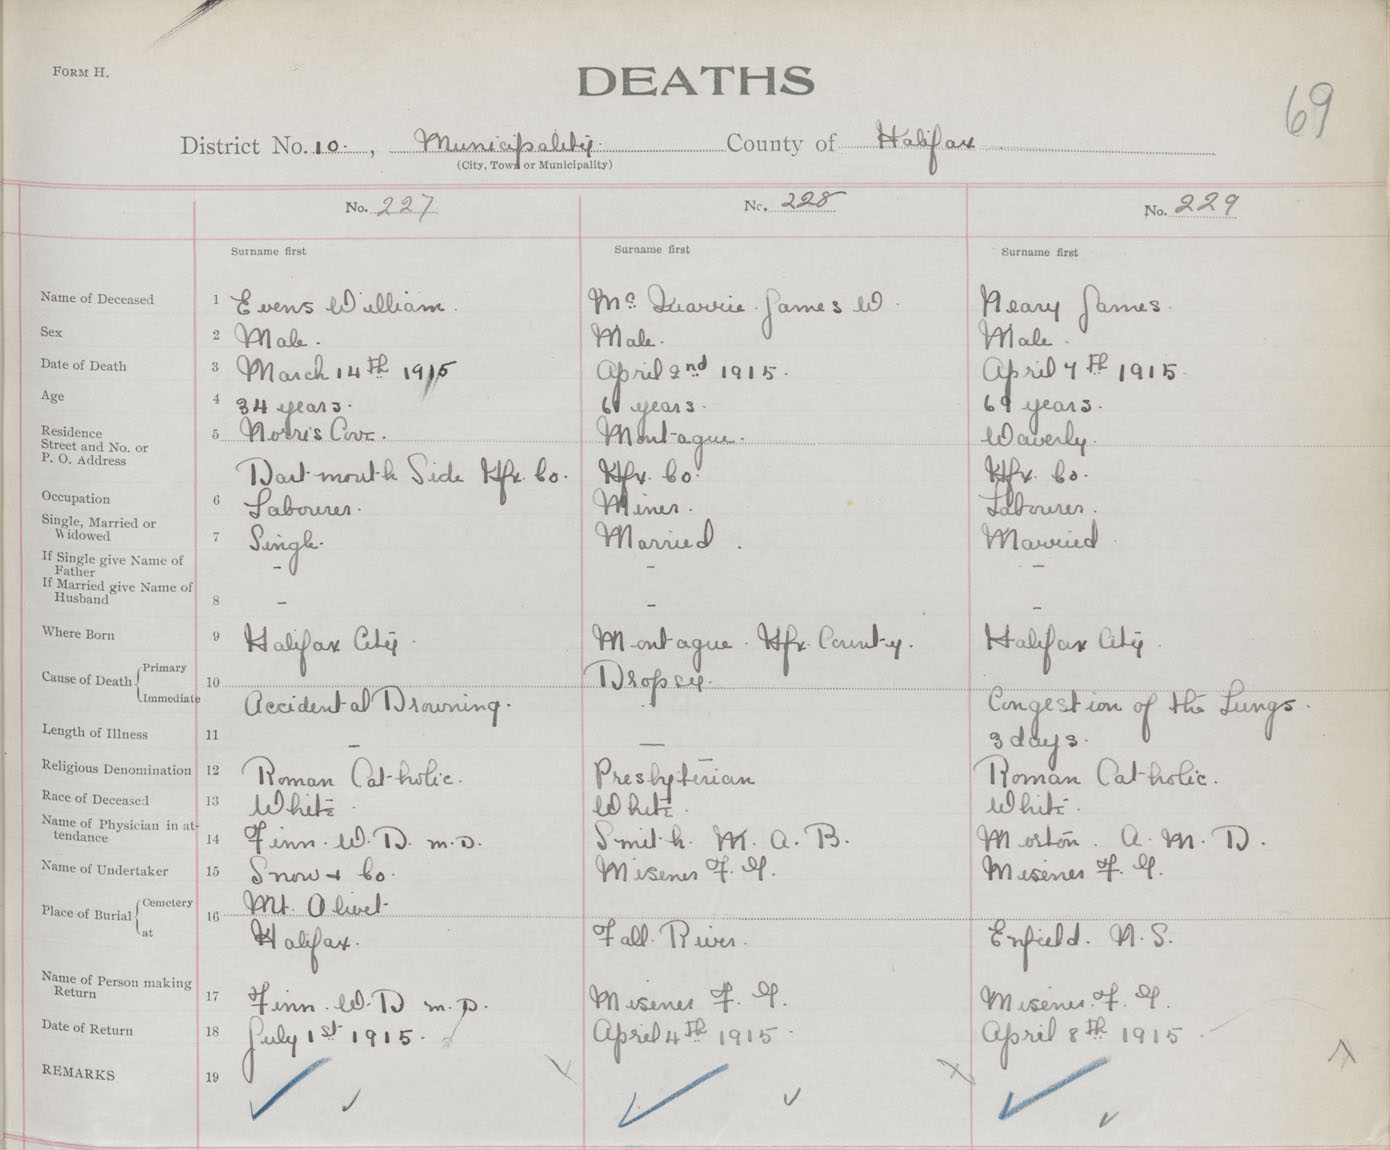 FORM H.
DEATHS
69
District No. 10. , Municipality. County of Halifax
(City, Town or Municipality)
No. 227 No. 228 No. 229
Surname first Surname first Surname first
Name of Deceased 1 Evens William. Mc Quarrie James W. Neary James.
Sex 2 Male. Male. Male.
Date of Death 3 March 14th 1915 April 2nd 1915. April 7th 1915.
Age 4 34 years. years. 69 years.
Residence
Street and No. or
P. O. Address
5 Norris Cove. Montague. Waverly.
Dartmouth Side Hfx. Co. Hfx. Co. Hfx. Co.
Occupation 6 Labourer. Miner. Labourer.
Single, Married or
Widowed
7 Single. Married. Married.
If Single give Name of
Father
- - -
If Married give Name of
Husband
8 - - -
Where Born 9 Halifax City. Montague. Hfx. County. Halifax City.
Cause of Death { Primary
Immediate
10 Dropsy.
Accidental Drowning. Congestion of the Lungs.
Length of Illness 11 - — 3 days.
Religious Denomination 12 Roman Catholic. Presbyterian Roman Catholic.
Race of Deceased 13 White. White. White.
Name of Physician in at-
tendance
14 Finn. W. D. M.D. Smith. M. A. B. Morton. A. M. D.
Name of Undertaker 15 Snow & Co. Misener F. G. Misener F. G.
Place of Burial { Cemetery
at
16 Mt. Olivet
Halifax. Fall River. Enfield. N.S.
Name of Person making
Return
17 Finn. W. D M.D. Misener F. G. Misener. F. G.
Date of Return 18 July 1st 1915. April 4th 1915. April 8th 1915
REMARKS 19